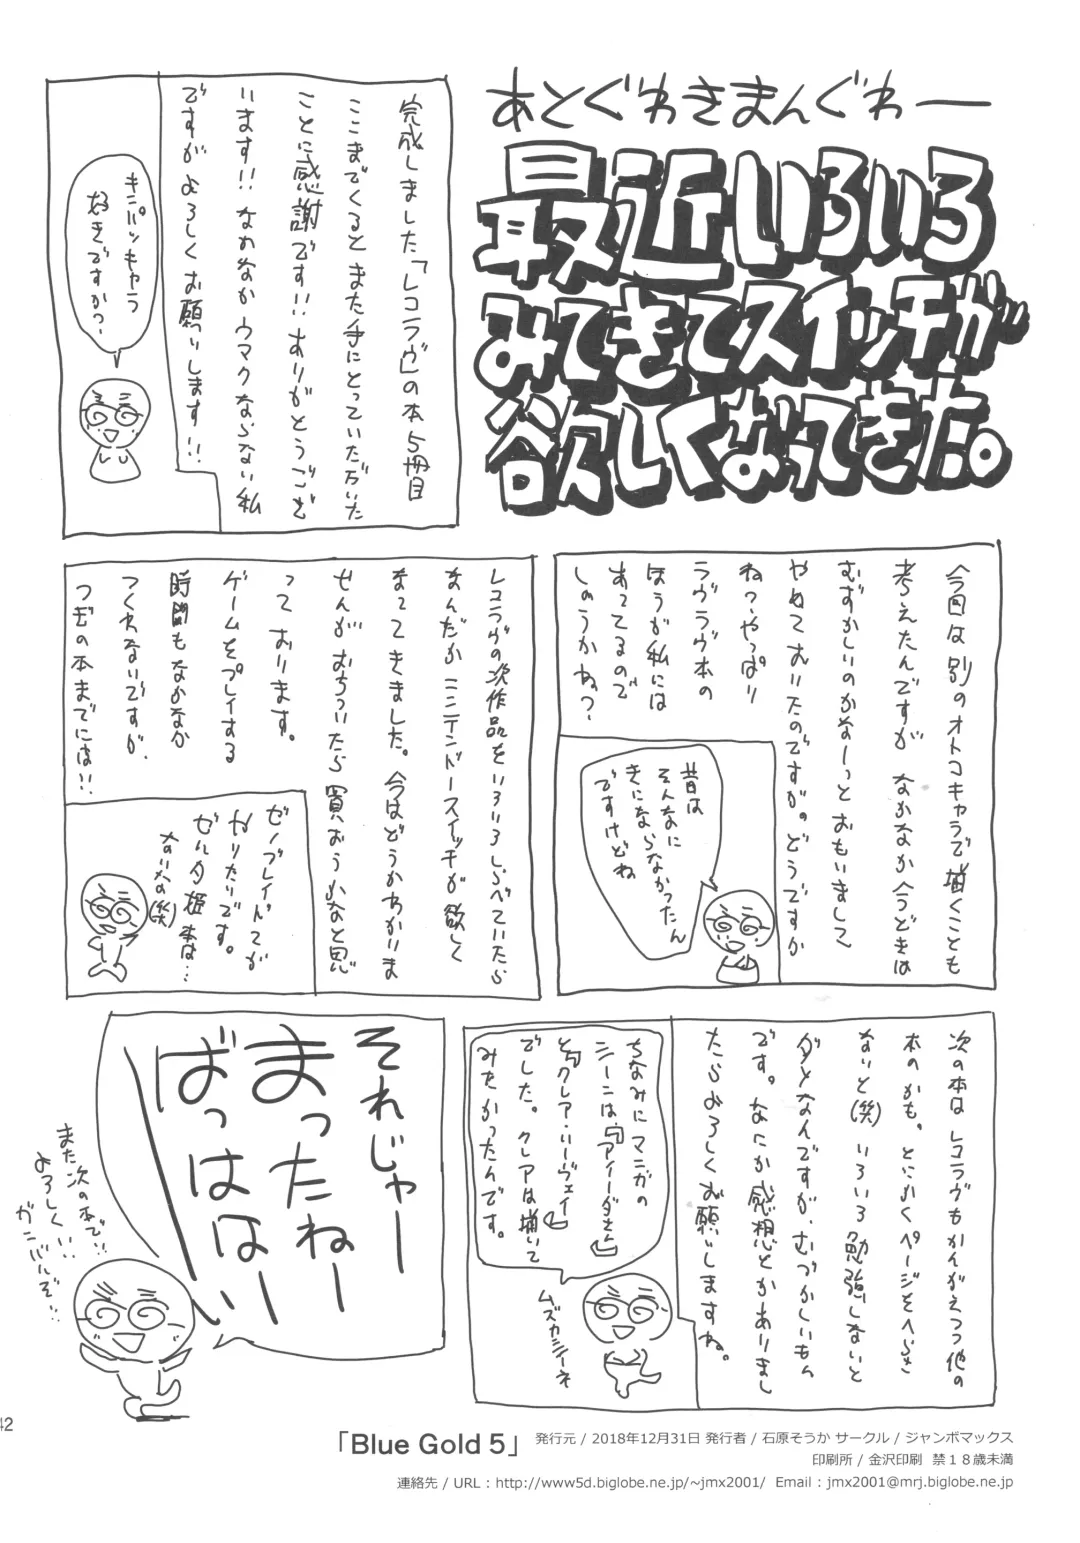 あとぐわきまんぐわー
最近いろいろ
みてきてスイッチが
欲しくなってきた。
完成しました「レコラヴ」の本5冊目
ここまでくるとまた手にとっていただいた
ことに感謝です!!ありがとうござ
います!!なかなかウマクならない私
ですがよろしくお願いします!!
キンパツキャラ
好きですか?
今回は別のオトコキャラで描くことも
考えたんですがなかなか今どきは
むずかしいのかなーっとおもいまして
やめておいたのですが。どうですか
ねっ、やっぱり
ラヴラヴ本の
ほうが私には
あってるので
しょうかねっ?
昔は
そんなに
きにならなかったん
ですけどね
レコラヴの次作品をいろいろしらべていたら
なんだかニンテンドースイッチが欲しく
なってきました。今はどうかわかりま
せんがおちついたら買おうかなと思
っております。
ゲームをプレイする
時間もなかなか
つくれないですが、
つぎの本までには!!
ゼノブレイドとか
やりたいです。
ゼルダ姫本は…
ないなの(笑)
次の本はレコラヴもかんがえつつ他の
本のかも。とにかくページをへらさ
ないと(笑)いろいろ勉強しないと
ダメなんですが、むづかしいもん
です。なにか感想とかありまし
たらよろしくお願いしますね。
ちなみにマンガの
シーンは「アイーダさん」
と「クレア・ハーヴェイ」
でした。クレアは描いて
みたかったんです。
ムズカシーネ
それじゃー
まったねー
ばっはは〜い
また次の本で!!
よろしくい!!
ガンバルぞ!!
42
「Blue Gold 5」
発行元 / 2018年12月31日 発行者 / 石原そうか サークル / ジャンボマックス
印刷所 / 金沢印刷 禁18歳未満
連絡先 / URL : http://www5d.biglobe.ne.jp/~jmx2001/ Email : jmx2001@mrj.biglobe.ne.jp